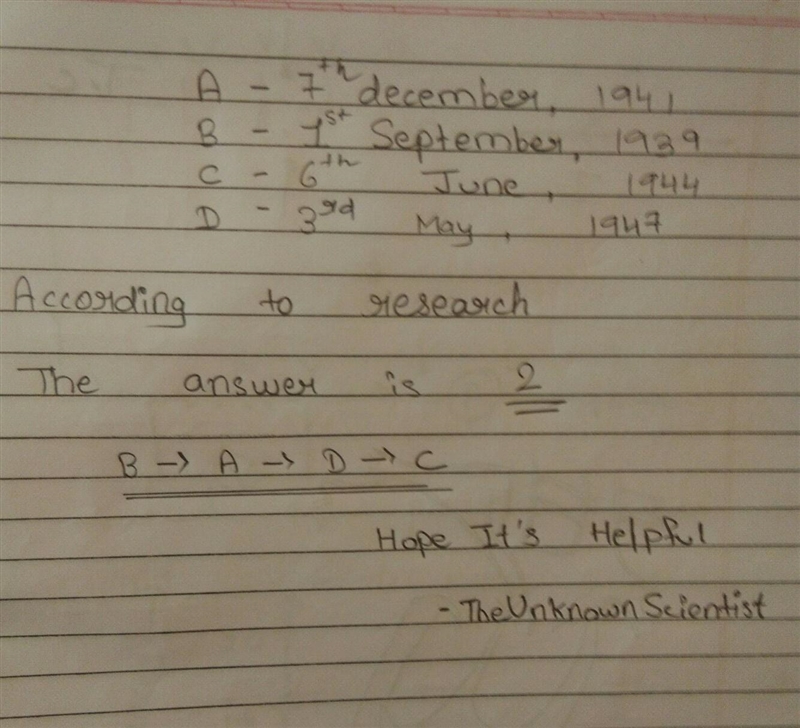 A - 7th december, 1941
B - 1st September, 1939
C - 6th June, 1944
D - 3rd May, 1947
According to research
The answer is 2
B → A → D → C
Hope It's Helpful
- TheUnknownScientist